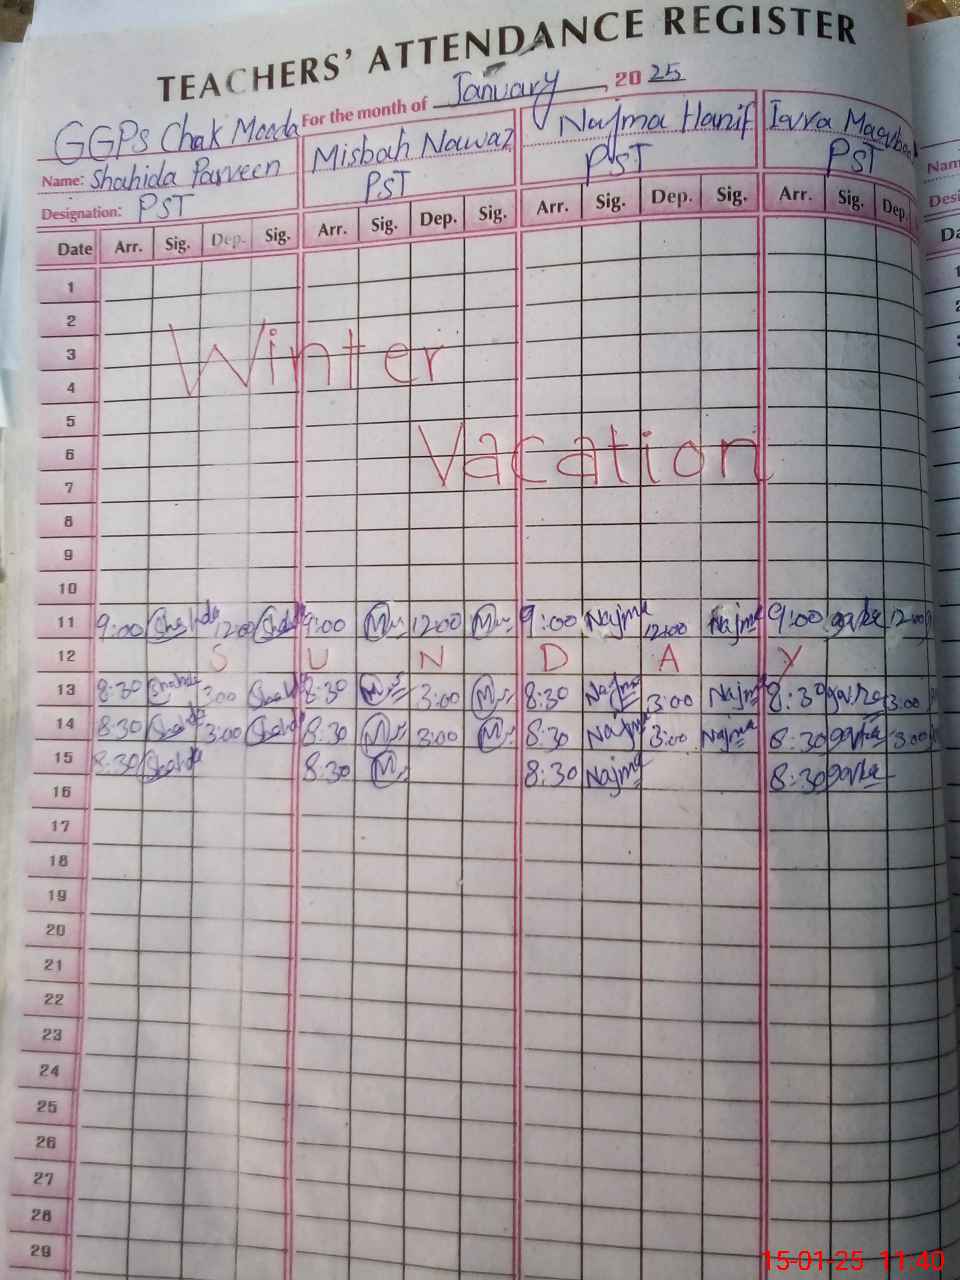 TEACHERS' ATTENDANCE REGISTER
For the month of January, 2025
GGPS Chak Moada
Name: Shahida Parveen Misbah Nawaz Najma Hanif
Designation: PST PST PST PST
Date Arr. Sig. Dep. Sig. Arr. Sig. Dep. Sig. Arr. Sig. Dep. Sig. Arr. Sig. Dep.
1
2
3
Winter
4
5
6
Vacation
7
8
9
10
11 9:00 Shahida 12:00 Shahida 9:00 M 12:00 M 9:00 Najma 12:00 Najma 9:00 12:00
12 S U N D A Y
13 8:30 Shahida 3:00 Shahida 8:30 M 3:00 M 8:30 Najma 3:00 Najma 8:30 3:00
14 8:30 Shahida 3:00 Shahida 8:30 M 3:00 M 8:30 Najma 3:00 Najma 8:30 3:00
15 8:30 Shahida 8:30 M 8:30 Najma 8:30
16
17
18
19
20
21
22
23
24
25
26
27
28
29
15-01-25 11:40